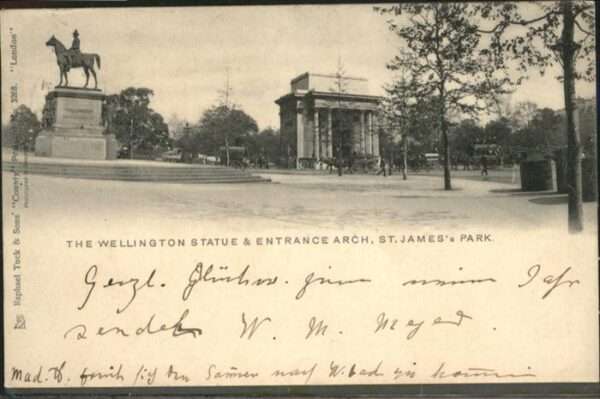 Raphael Tuck & Sons' "County" Postcard 3268. "London"
THE WELLINGTON STATUE & ENTRANCE ARCH, ST. JAMES's PARK.
Herzl. Glückw. zum neuen Jahr
sendet W. M.
Mad. freut sich den Sommer nach W.bad zu kommen